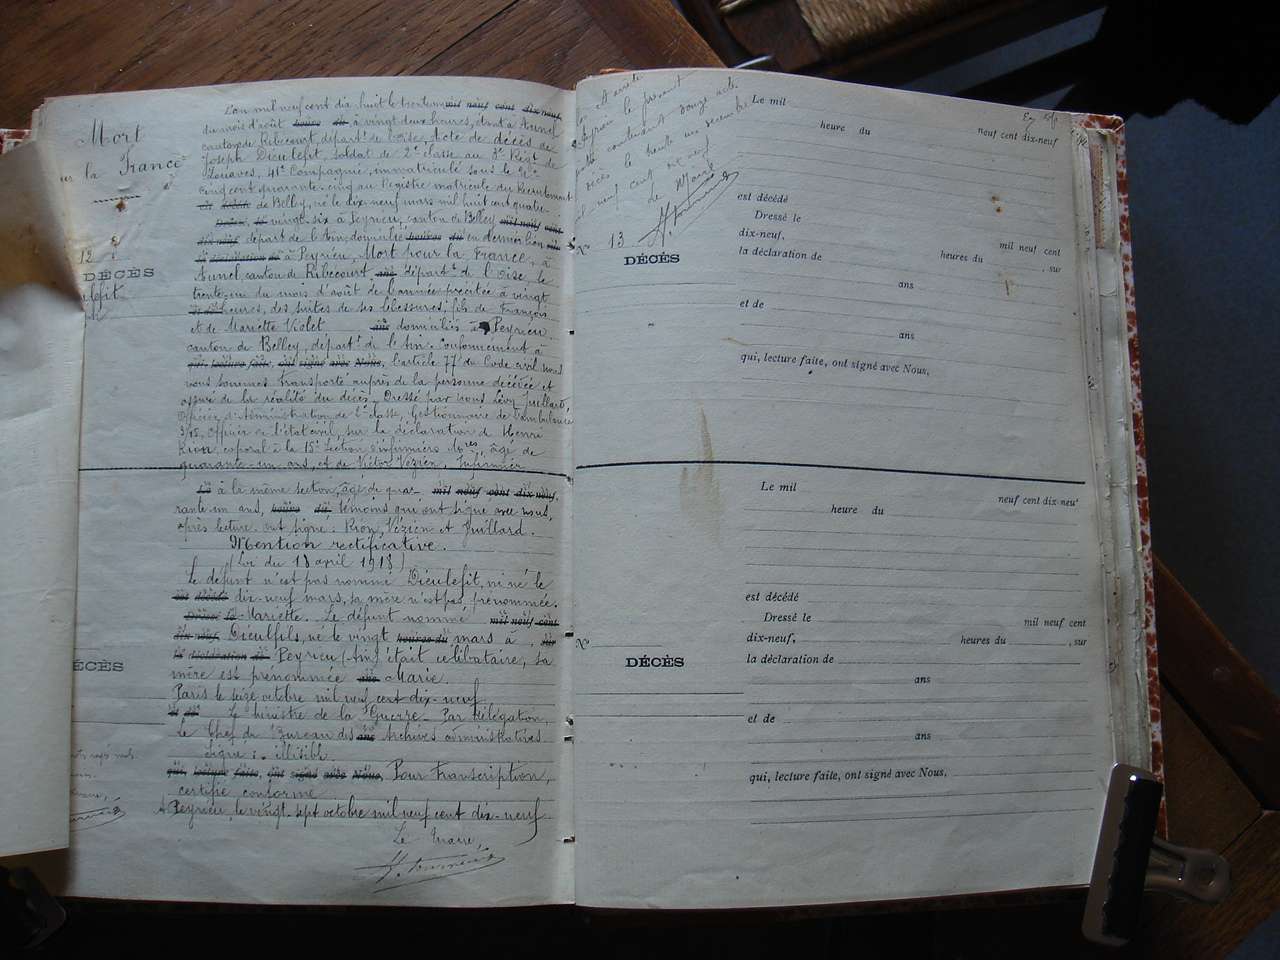 Mort
la France
12
DÉCÈS
L'an mil neuf cent dix huit le trente mil neuf cent dix-neuf,
du mois d'août heure du à vingt deux heures, étant à Aunel
canton de Ribécourt, départ.t de l'Oise, Acte de décès de
Joseph Dieulefit, soldat de 2e classe au 3e Régt de
Zouaves, 41e Compagnie, immatriculé sous le No
cinq cent quarante-cinq au registre matricule du Recrutement
est décédé de Belley, né le dix-neuf mars mil huit cent quatre-
Dressé le vingt-six à Peyrieu, canton de Belley mil neuf cent
dix-neuf, départ de l'Ain, domicilié heures du en dernier lieu sur
la déclaration de à Peyrieu, Mort pour la France, à
Aunel, canton de Ribécourt ans départ.t de l'Oise le
trente-un du mois d'août de l'année précitée à vingt
et de heures, des suites de ses blessures, fils de François
et de Mariette Violet ans domiciliés à Peyrieu
canton de Belley, départ.t de l'Ain. Conformément à
qui, lecture faite, ont signé avec Nous, l'article 77 du Code civil nous
nous sommes transporté auprès de la personne décédée et
assuré de la réalité du décès. Dressé par nous Lévy Juillard,
Officier d'Administration de 1e classe, Gestionnaire de l'ambulance
3/15, officier de l'état civil, sur la déclaration de Henri
Rion, caporal à la 15e Section d'infirmiers Mres, âgé de
quarante-un ans, et de Victor Vézien, Infirmier
à la même section, âgé de qua- mil neuf cent dix-neuf,
rante-un ans, heure du témoins qui ont signé avec nous,
après lecture. ont signé: Rion, Vézien et Juillard.
Mention rectificative.
(Loi du 18 april 1918)
Le défunt n'est pas nommé Dieulefit, ni né le
est décédé dix-neuf mars, sa mère n'est pas prénommée
Dressé le Mariette. Le défunt nommé mil neuf cent
dix-neuf, Dieulfils, né le vingt heures du mars à , sur
la déclaration de Peyrieu (Ain) était célibataire, sa
mère est prénommée ans Marie.
Paris le seize octobre mil neuf cent dix-neuf
et de Le Ministre de la Guerre - Par délégation,
Le Chef du Bureau des ans Archives administratives
Signé: illisible.
qui, lecture faite, ont signé avec Nous, Pour transcription,
certifié conforme
A Peyrieu, le vingt-sept octobre mil neuf cent dix-neuf
Le Maire,
DÉCÈS
Arrêté
le présent
contenant douze acte
décès le trente un décembre
mil neuf cent dix neuf
Le Maire
No 13
DÉCÈS
Le mil
heure du
neuf cent dix-neuf
est décédé
Dressé le
mil neuf cent
dix-neuf,
heures du
, sur
la déclaration de
ans
et de
ans
qui, lecture faite, ont signé avec Nous,
No
DÉCÈS
Le mil
neuf cent dix-neuf
heure du
est décédé
Dressé le
mil neuf cent
dix-neuf,
heures du
, sur
la déclaration de
ans
et de
ans
qui, lecture faite, ont signé avec Nous,